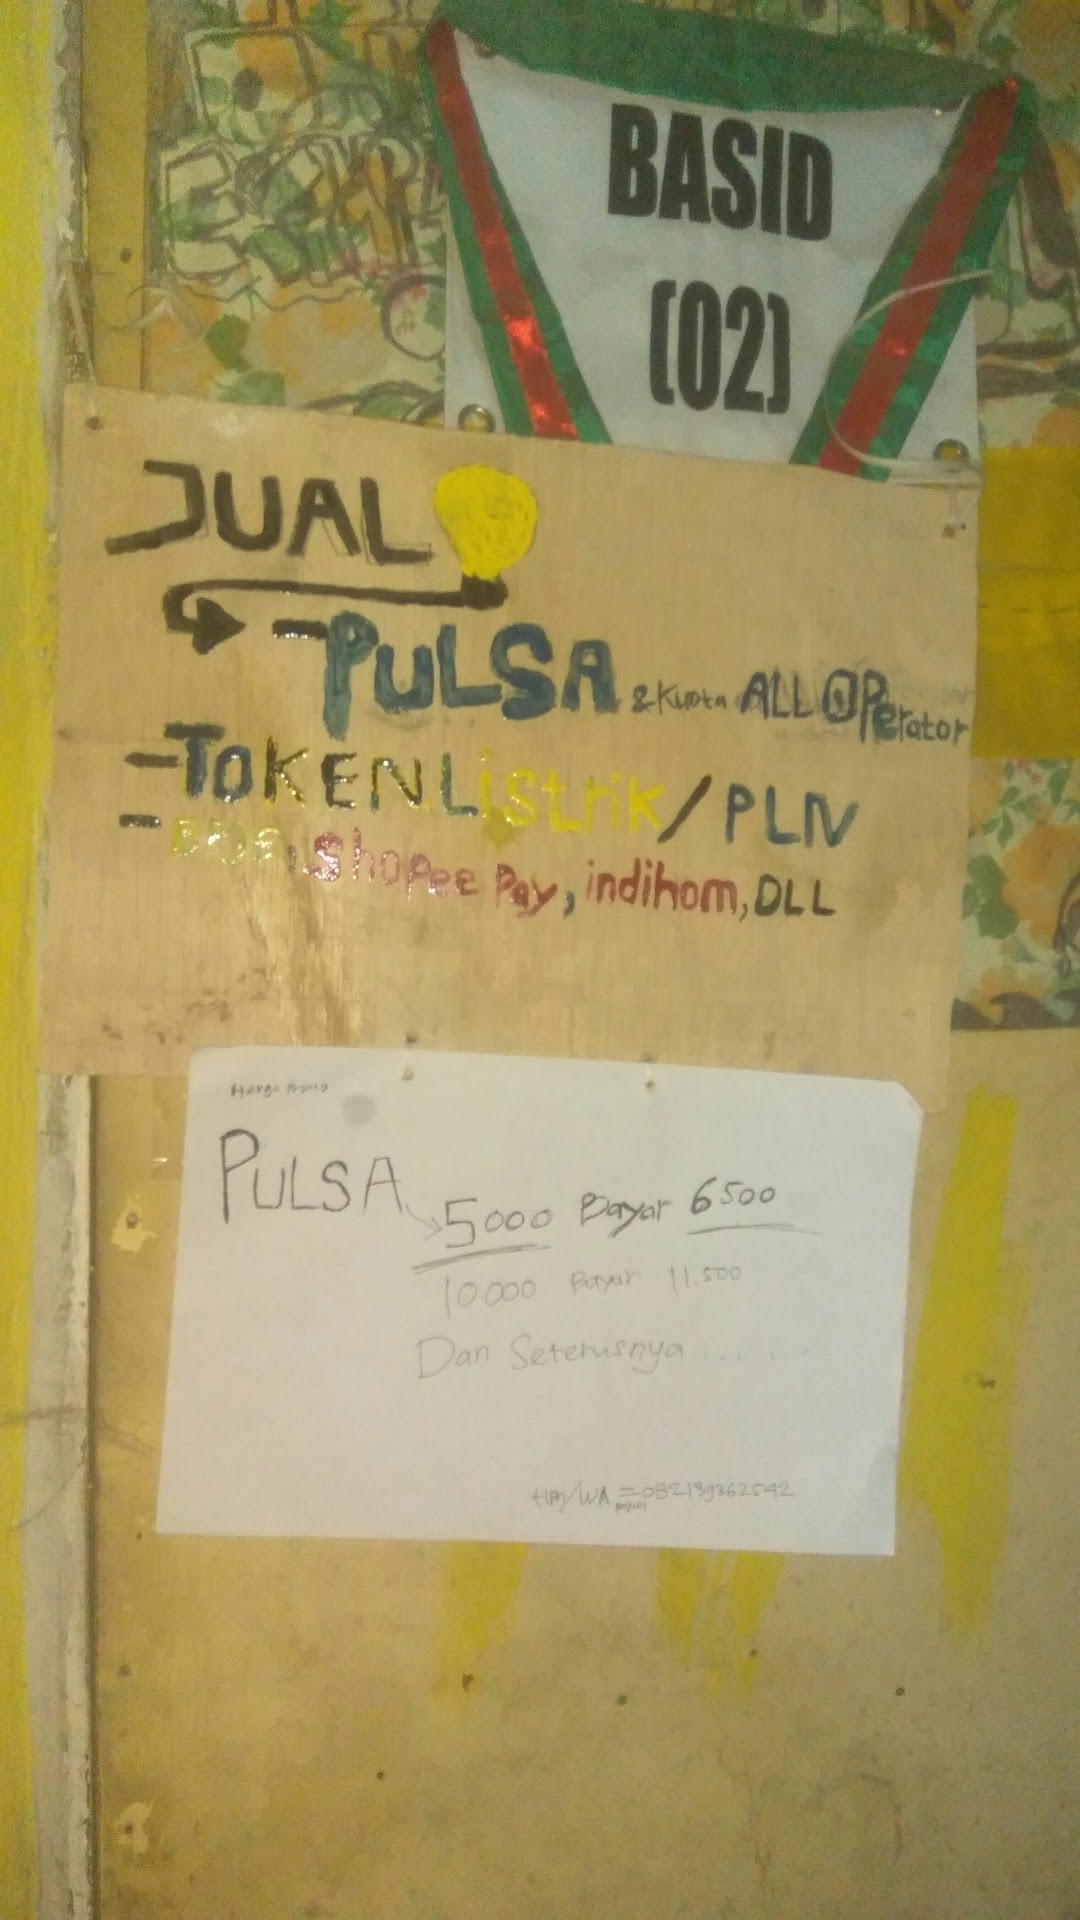 BASID
(02)
JUAL
-PULSA & Kuota ALL OPerator
-TOKEN Listrik / PLN
- Shopee Pay, indihom, DLL
Harga Promo
PULSA
5000 Bayar 6500
10.000 Bayar 11.500
Dan Seterusnya......
WA = 082189362542